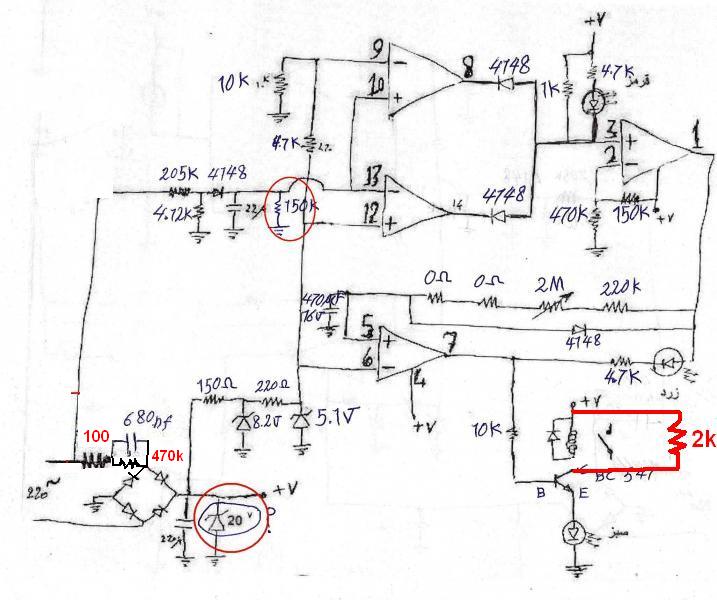 +V
9
8
4148
4.7K
قرمز
10K
10
1K
3
1
4.7K
2
205K
4148
13
4.12K
150K
14
4148
12
470K
150K
+V
0Ω
0Ω
2M
220K
470µF
16V
5
4148
6
7
150Ω
220Ω
4
4.7K
زرد
8.2V
5.1V
+V
+V
680nf
10K
2k
100
470k
BC 547
220~
+V
B
E
20 V
?
سبز